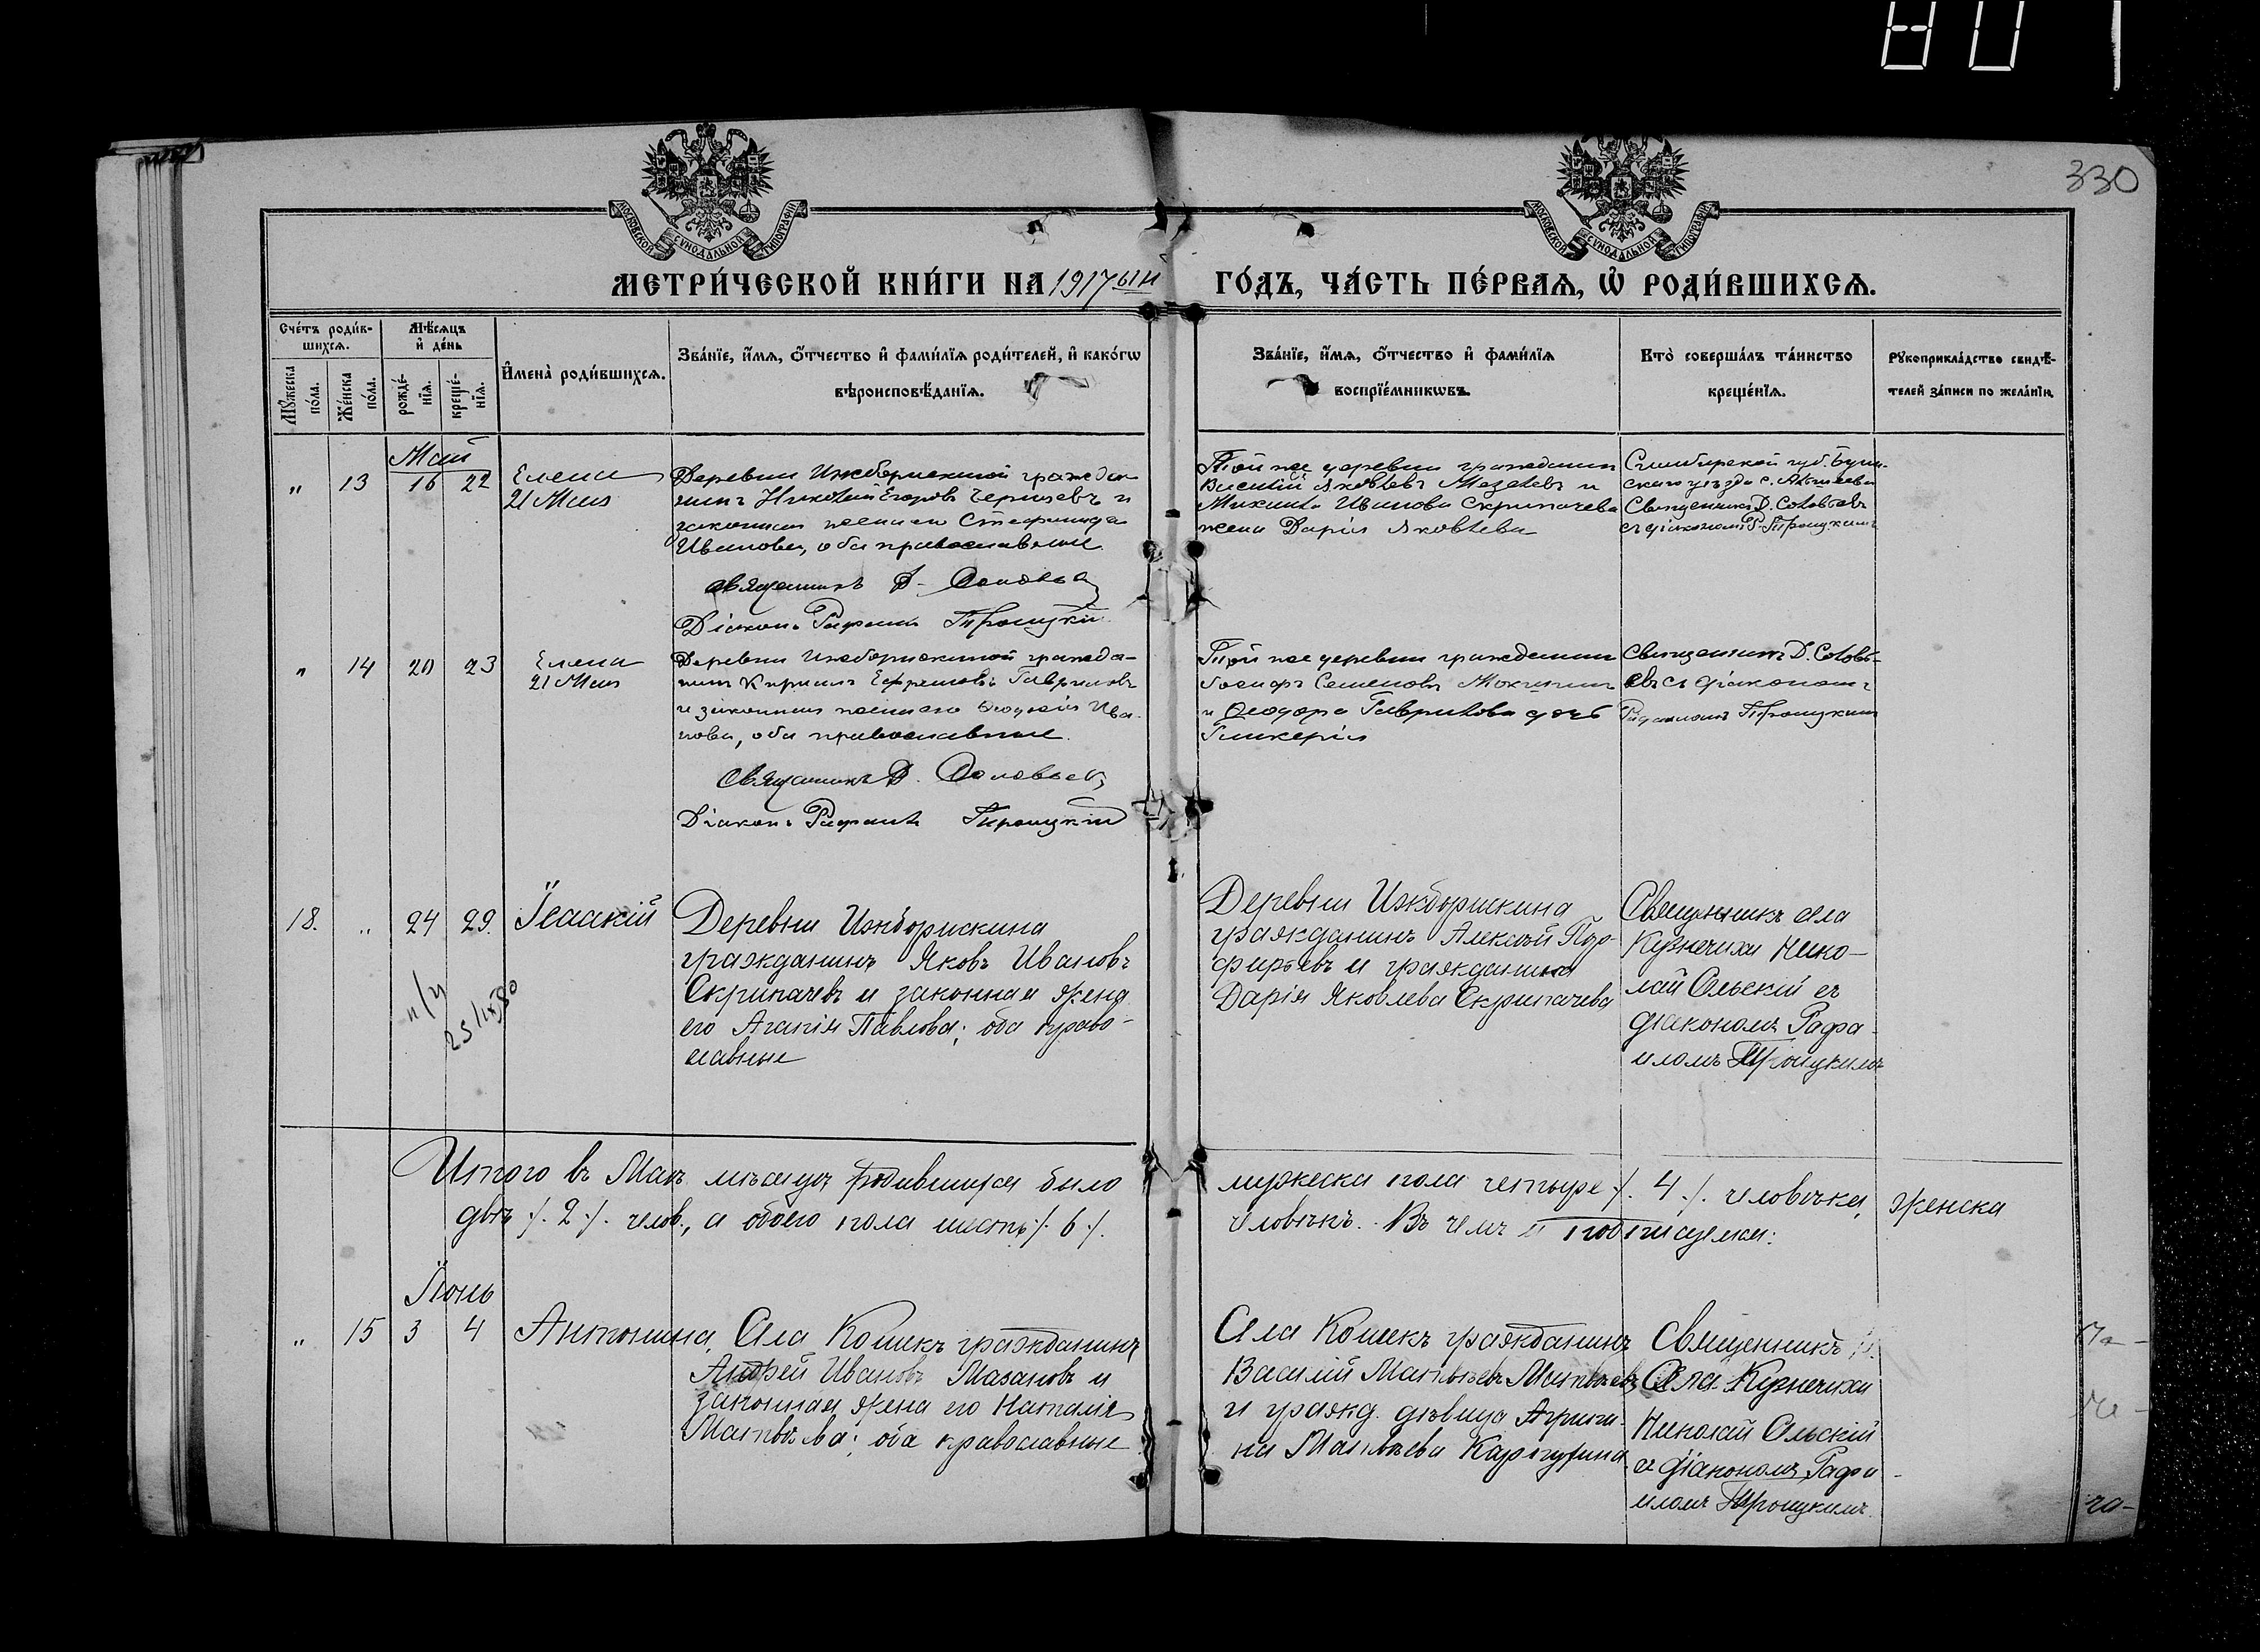 330
МОСКОВСКОЙ СѴНОДАЛЬНОЙ ТИПОГРАФІИ
МОСКОВСКОЙ СѴНОДАЛЬНОЙ ТИПОГРАФІИ
МЕТРИ́ЧЕСКОЙ КНИ́ГИ НА 1917 ый ГО́ДЪ, ЧА́СТЬ ПЕ́РВАѦ, Ѡ҆ РОДИ́ВШИХСѦ.
Сче́тъ роди́в-
шихсѧ.
Мꙋ́жеска
по́ла.
Же́нска
по́ла.
Мѣ́сѧцъ
и҆ де́нь
рожде́-
нїѧ.
креще́-
нїѧ.
И҆мена̀ роди́вшихсѧ.
Зва́нїе, и҆́мѧ, ѻ҆́тчество и҆ фами́лїѧ роди́телей, и҆ како́гѡ
вѣроисповѣ́данїѧ.
Зва́нїе, и҆́мѧ, ѻ҆́тчество и҆ фами́лїѧ
воспрїе́мникѡвъ.
Кто̀ соверша́лъ та́инство
креще́нїѧ.
Рꙋкоприкла́дство свидѣ́-
телей за́писи по жела́нїю.
Май
" 13 16 22
Елена
21 Мая
Деревни Ижборискиной гражда-
нинъ Николай Егоровъ Чернцевъ и
законная жена его Стефанида
Иванова, оба православные
Священникъ Д. Соловьев
Діаконъ Рафаилъ Троицкій
Той же деревни гражданинъ
Василій Яковлевъ Мазановъ и
Михаила Иванова Скрипачева
жена Дарія Яковлева
Симбирской губ. Буин-
скаго уѣзда с.
Священникъ Д. Соловьевъ
съ діакономъ Р. Троицкимъ
" 14 20 23
Елена
21 Мая
Деревни Ижборискиной гражда-
нинъ Кириллъ Ефремовъ Гавриловъ
и законная жена его Ива-
нова, оба православные.
Священникъ Д. Соловьев
Діаконъ Рафаилъ Троицкій
Той же деревни гражданинъ
Іосифъ Семеновъ
и Ѳеодора Гаврилова дочь
Гликерія
Священникъ Д. Соловь-
евъ съ діакономъ
Рафаиломъ Троицкимъ
18. " 24 29.
Іісаакій
25/IX 80
Деревни Ижборискина
гражданинъ Яковъ Ивановъ
Скрипачевъ и законная жена
его Агапія Павлова; оба право-
славные
Деревни Ижборискина
гражданинъ Алексѣй Пор-
фирьевъ и гражданина
Дарія Яковлева Скрипачева
Священникъ села
Кузнечихи Нико-
лай Ольскій съ
діакономъ Рафа-
иломъ Троицкимъ
Итого въ Маѣ мѣсяцѣ родившихся было мужеска пола четыре /. 4 ./. человѣка, женска
двѣ /. 2 ./. челов., а обоего пола шесть /. 6 /. человѣкъ. Въ чемъ и подписуемся:
Іюнь
" 15 3 4
Антонина
Села Кошекъ гражданинъ
Андрей Ивановъ Мазановъ и
законная жена его Наталія
Матвѣева; оба православные
Села Кошекъ гражданинъ
Василій Матвѣевъ Матвѣевъ
и гражд. дѣвица Агрипи-
на Матвѣева
Священникъ
Села Кузнечихи
Николай Ольскій
съ діакономъ Рафа-
иломъ Троицкимъ.